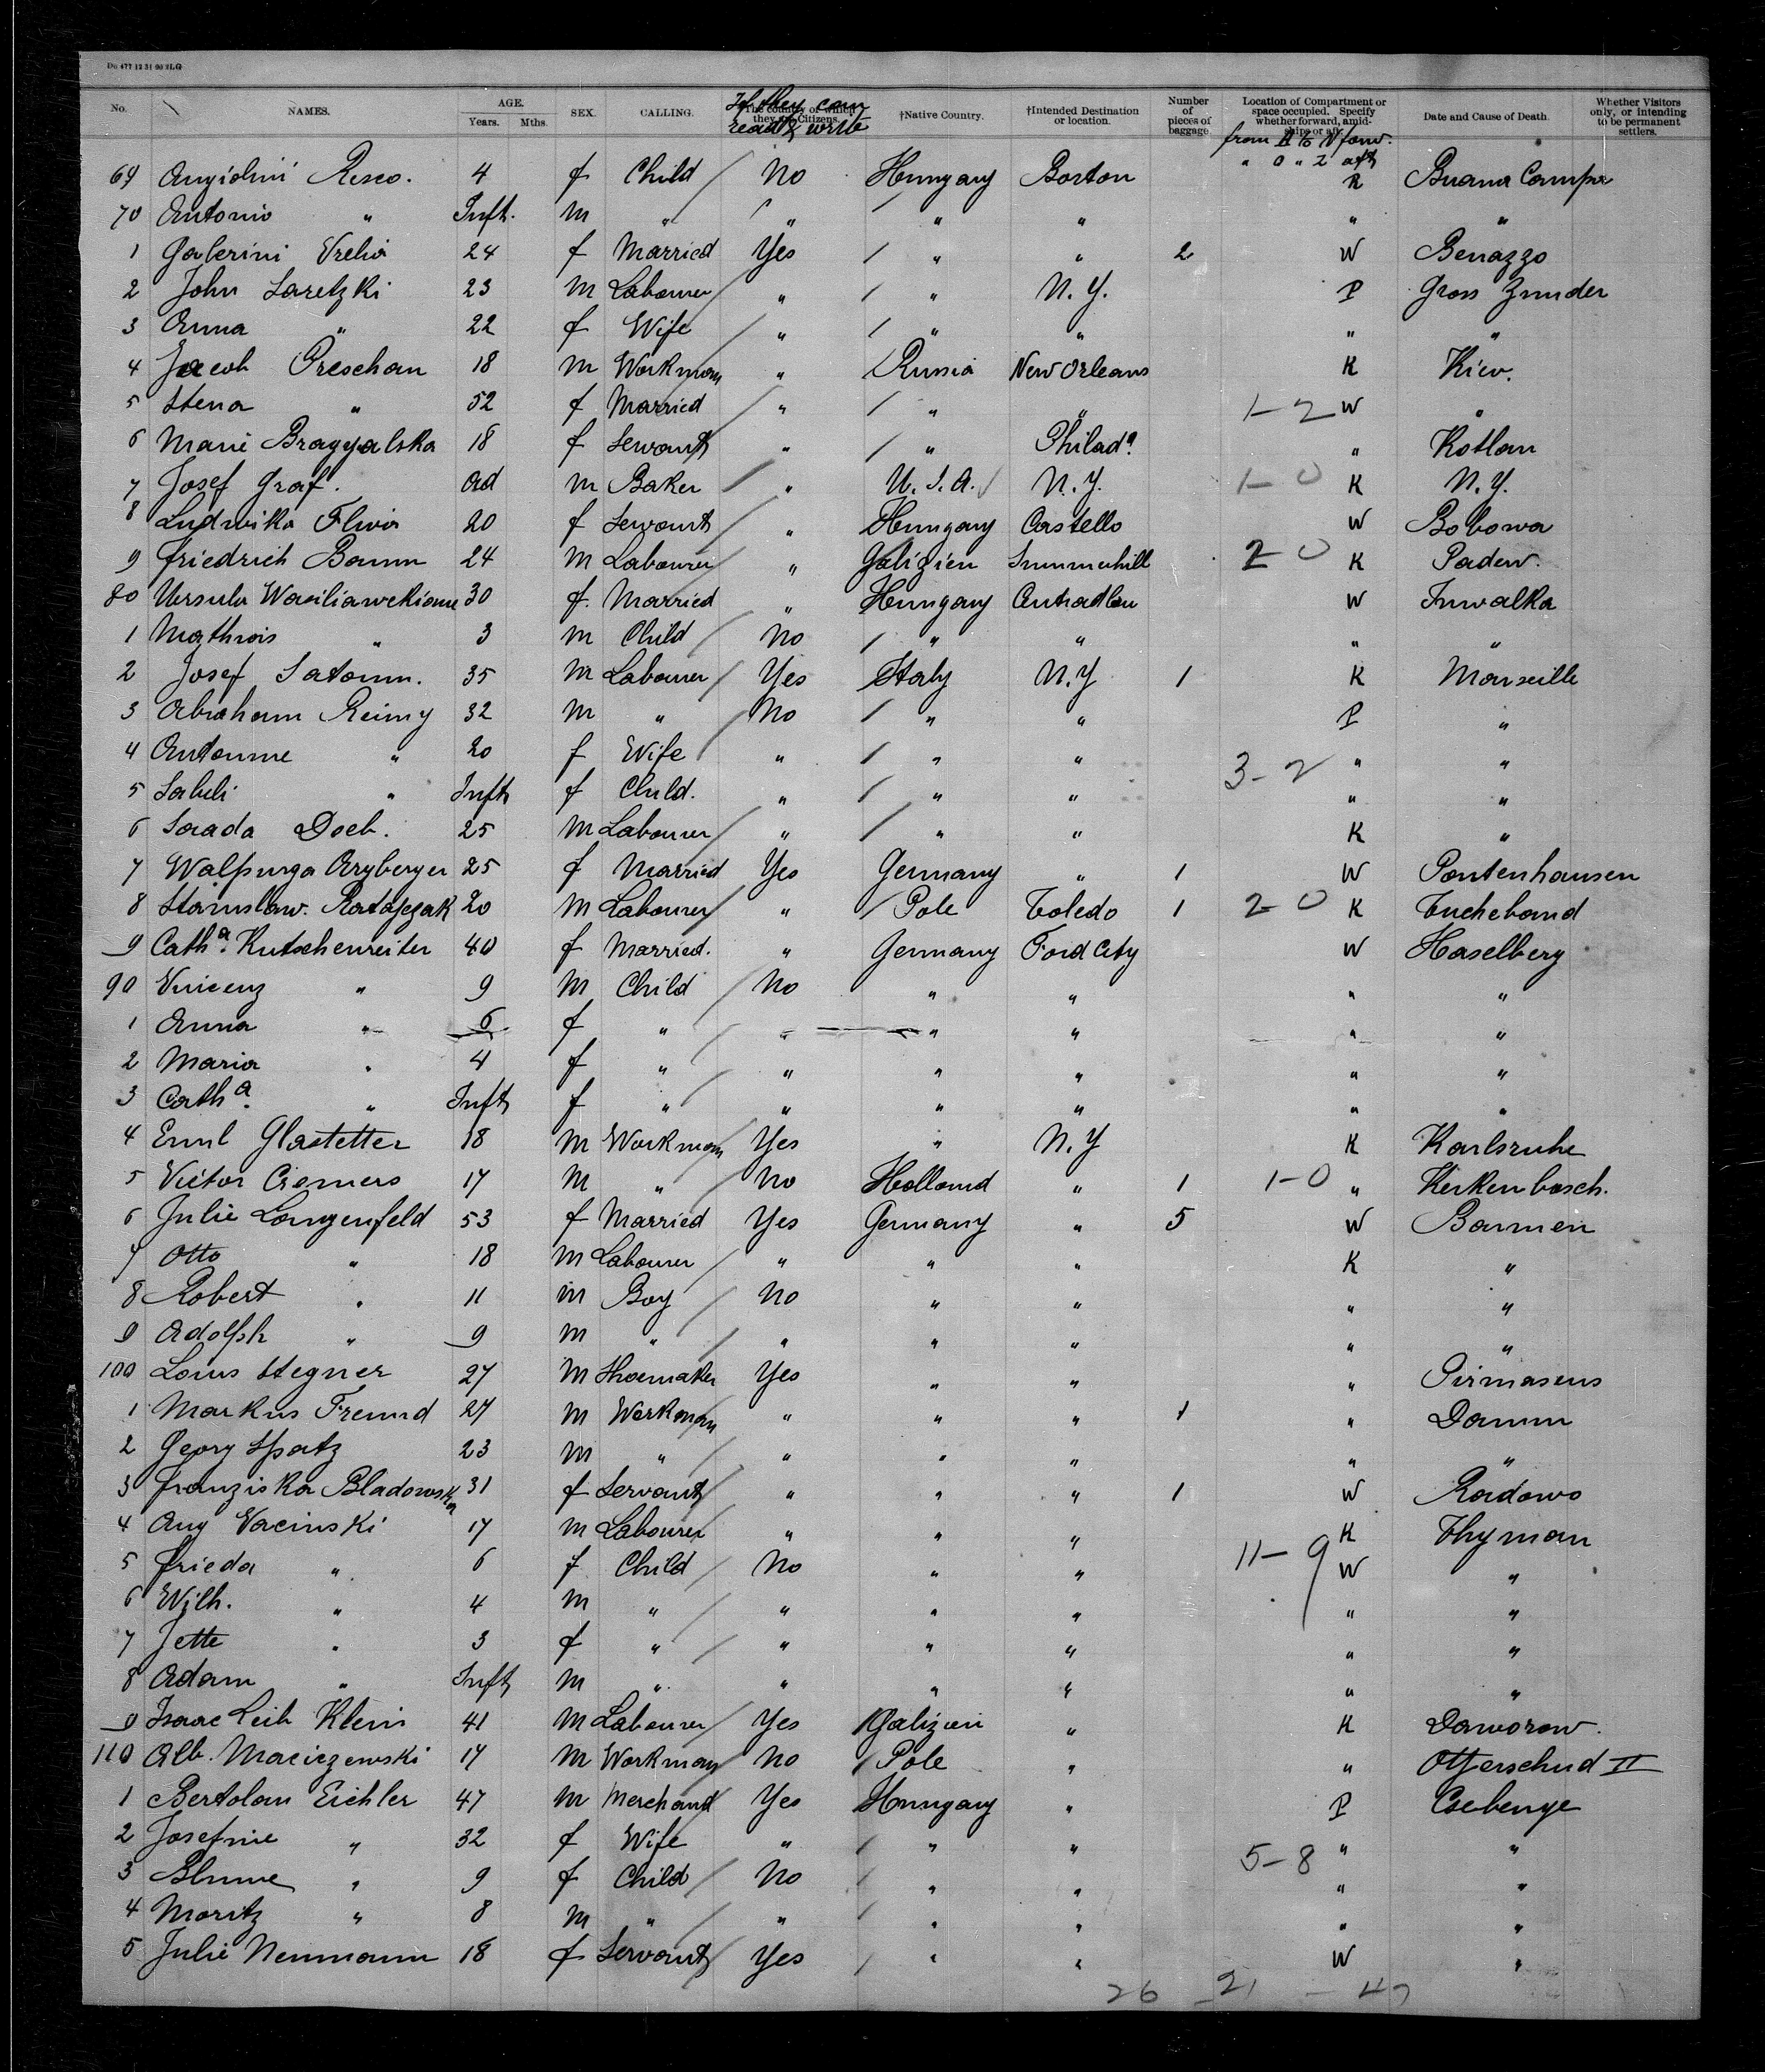 Do 477 12 31 90 2LG
No. NAMES. AGE. Years. Mths. SEX. CALLING. The country of which they are Citizens. If they can read & write †Native Country. †Intended Destination or location. Number of pieces of baggage Location of Compartment or space occupied. Specify whether forward, amidships or aft. Date and Cause of Death. Whether Visitors only, or intending to be permanent settlers.
from A to N forw.
" O " Z aft
69 Angiolini Resco. 4 f Child No Hungary Boston K Buana Campa
70 Antonio " Inft. m " " " " " "
1 Galerini Vrelia 24 f Married Yes " " 2 W Benazzo
2 John Saretzki 23 m Labourer " " N.Y. P Gross Zunder
3 Anna " 22 f Wife " " " " "
4 Jacob Preschan 18 m Workman " Russia New Orleans K Kiew.
5 Stena " 52 f Married " " " 1-2 W "
6 Marie Bragyalska 18 f Servant " " Philada " Kotlan
7 Josef Graf. ad m Baker " U.S.A. N.Y. 1-0 K N.Y.
8 Ludwika Fliva 20 f Servant " Hungary Costello W Bobowa
9 Friedrich Baum 24 m Labourer " Galizien Summerhill 2-0 K Padew.
80 Ursula Wasiliawekione 30 f. Married " Hungary W Suwalka
1 Mathwis " 3 m Child No " " " "
2 Josef Satoum. 35 m Labourer Yes Italy N.Y 1 K Marseille
3 Abraham Reimy 32 m " No " " P "
4 Antonme " 20 f Wife " " " 3-2 " "
5 Sabuli " Inft f Child. " " " " "
6 Saada Doeb. 25 m Labourer " " " K "
7 Walpurga Aryberger 25 f Married Yes Germany " 1 W Pontenhausen
8 Stanislaw. Ratajczak 20 m Labourer " Pole Toledo 1 2-0 K Tucheband
9 Catha. Kutschenreiter 40 f Married. " Germany Ford City W Haselberg
90 Vincenz " 9 m Child No " " " "
1 Anna " 6 f " " " " " "
2 Maria " 4 f " " " " " "
3 Catha. " Inft f " " " " " "
4 Emil Glastetter 18 m Workman Yes " N.Y K Karlsruhe
5 Victor Cremers 17 m " No Holland " 1 1-0 " Kerkenbosch.
6 Julie Langenfeld 53 f Married Yes Germany " 5 W Barmen
7 Otto " 18 m Labourer " " " K "
8 Robert " 11 m Boy No " " " "
9 Adolph " 9 m " " " " " "
100 Louis Stegner 27 m Shoemaker Yes " " " Pirmasens
1 Markus Freund 27 m Workman " " " 1 " Damm
2 Georg Spatz 23 m " " " " " "
3 Franziska Bladowska 31 f Servant " " " 1 W Radowo
4 Aug Vacinski 17 m Labourer " " " K Thyman
5 Frieda " 6 f Child No " " 11-9 W "
6 Wilh. " 4 m " " " " " "
7 Jette " 3 f " " " " " "
8 Adam " Inft m " " " " " "
9 Isaac Leib Klein 41 m Labourer Yes Galizien " K Daworow.
110 Alb. Maciezewski 17 m Workman No Pole " " Otterschud II
1 Bertolan Eichler 47 m Merchant Yes Hungary " P Csebenye
2 Josefine " 32 f Wife " " " 5-8 " "
3 Blume " 9 f Child No " " " "
4 Moritz " 8 m " " " " " "
5 Julie Neumann 18 f Servant Yes " " W "
26 - 21 - 47